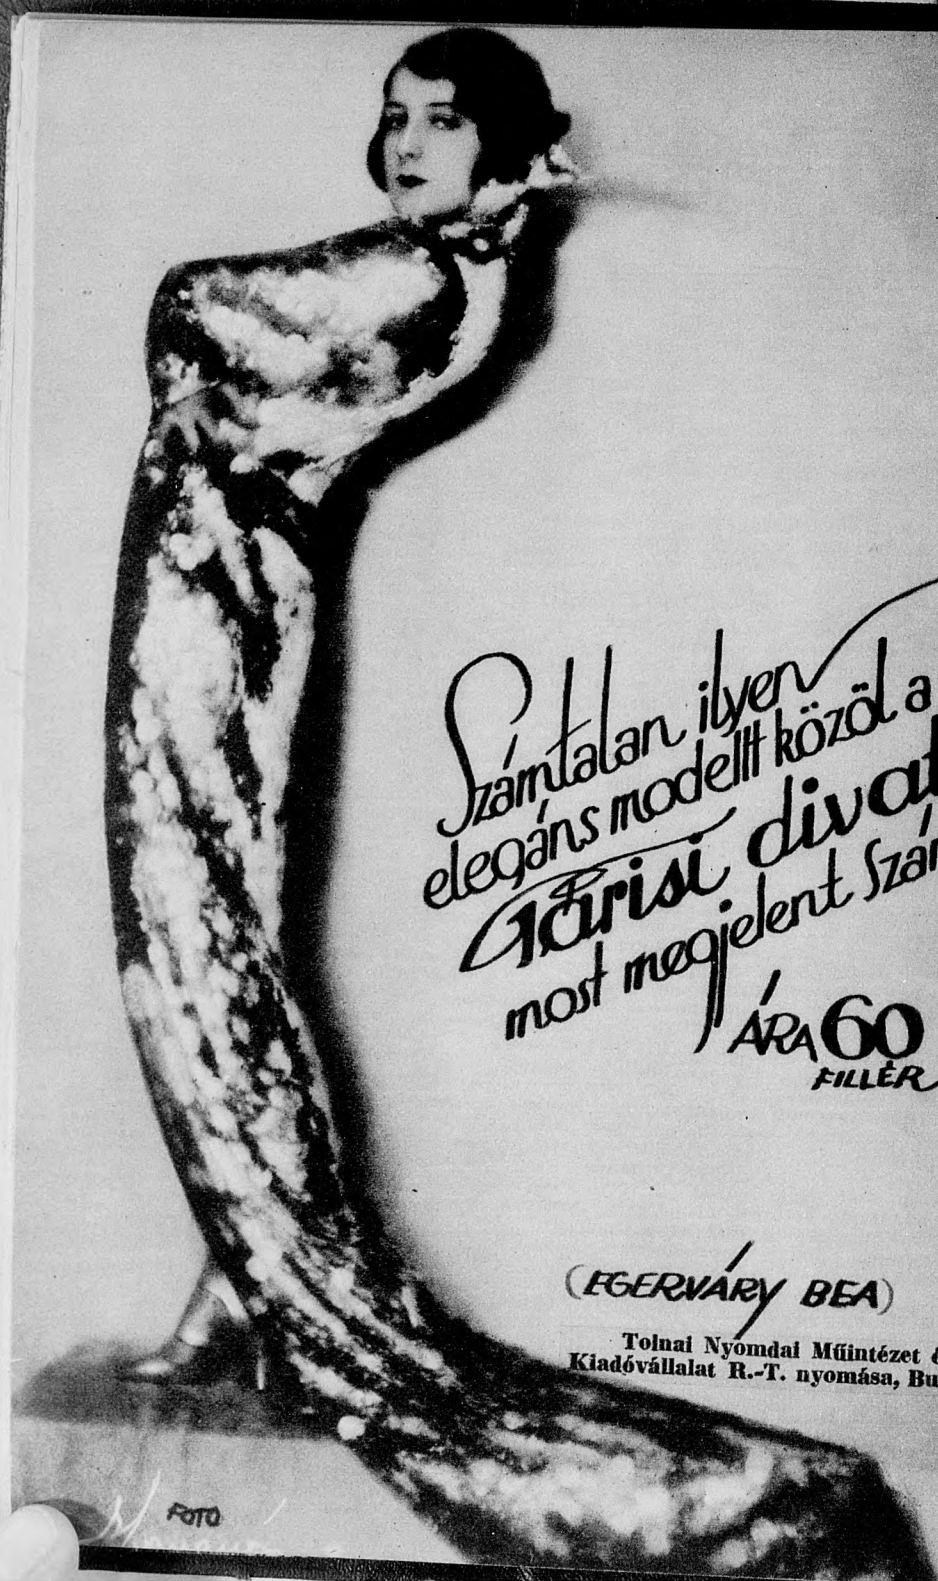 Számtalan ilyen
elegáns modellt közöl a
Párisi divat
most megjelent Szám
ÁRA 60
FILLÉR
(EGERVÁRY BEA)
Tolnai Nyomdai Műintézet é
Kiadóvállalat R.-T. nyomása, Bu
FOTO